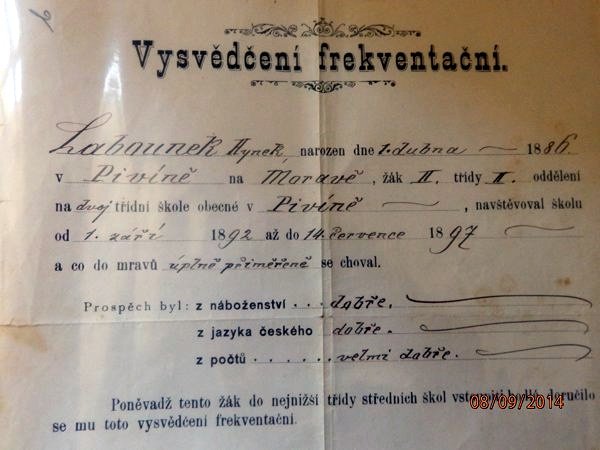 Vysvědčení frekventační.
Labounek Hynek, narozen dne 1. dubna 1886.
v Pivíně na Moravě, žák II. třídy II. oddělení
na dvojtřídní škole obecné v Pivíně, navštěvoval školu
od 1. září 1892 až do 14. července 1897
a co do mravů úplně přiměřeně se choval.
Prospěch byl: z náboženství . . . dobře.
z jazyka českého dobře.
z počtů . . . . . . velmi dobře.
Poněvadž tento žák do nejnižší třídy středních škol vstoupiti hodlá, doručilo
se mu toto vysvědčení frekventační.
08/09/2014